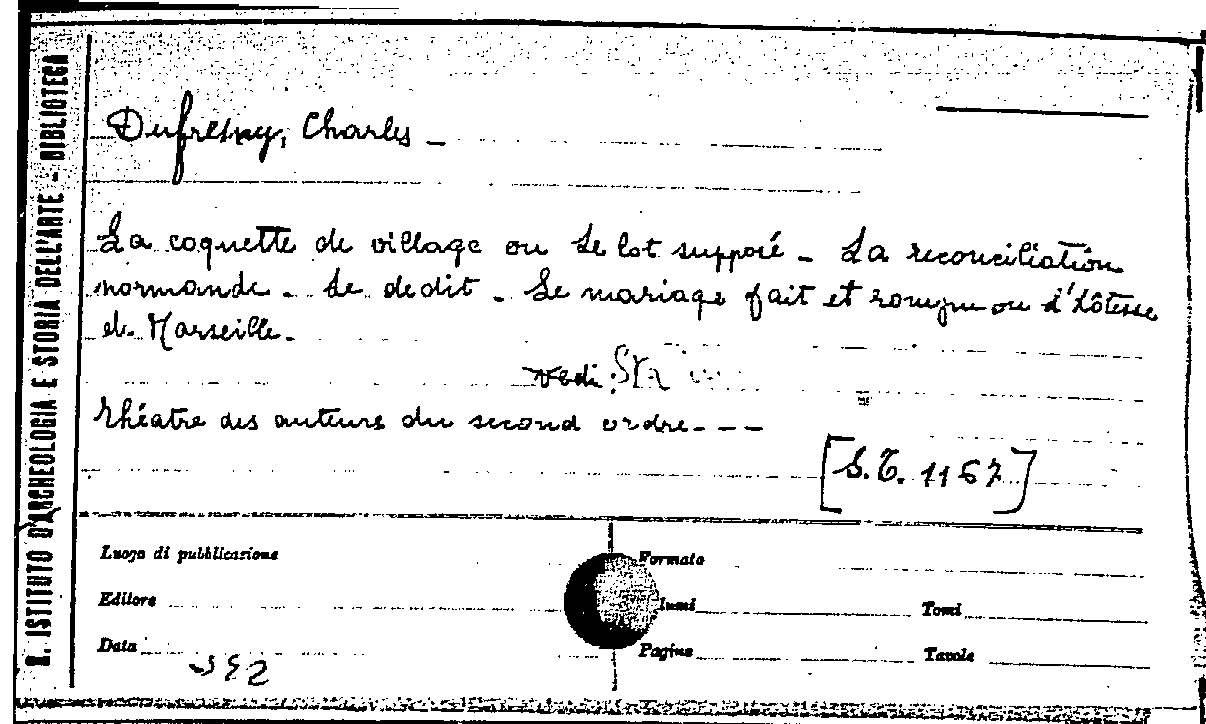 R. ISTITUTO D'ARCHEOLOGIA E STORIA DELL'ARTE - BIBLIOTECA
Dufresny, Charles -
La coquette de village ou Le lot supposé - La reconciliation
normande - Le dedit - Le mariage fait et rompu ou L'hôtesse
de Marseille.
vedi:
Théatre des auteurs du second ordre - - -
[S.T. 1167]
Luogo di pubblicazione
Formato
Editore
lumi
Tomi
Data
Pagine
Tavole